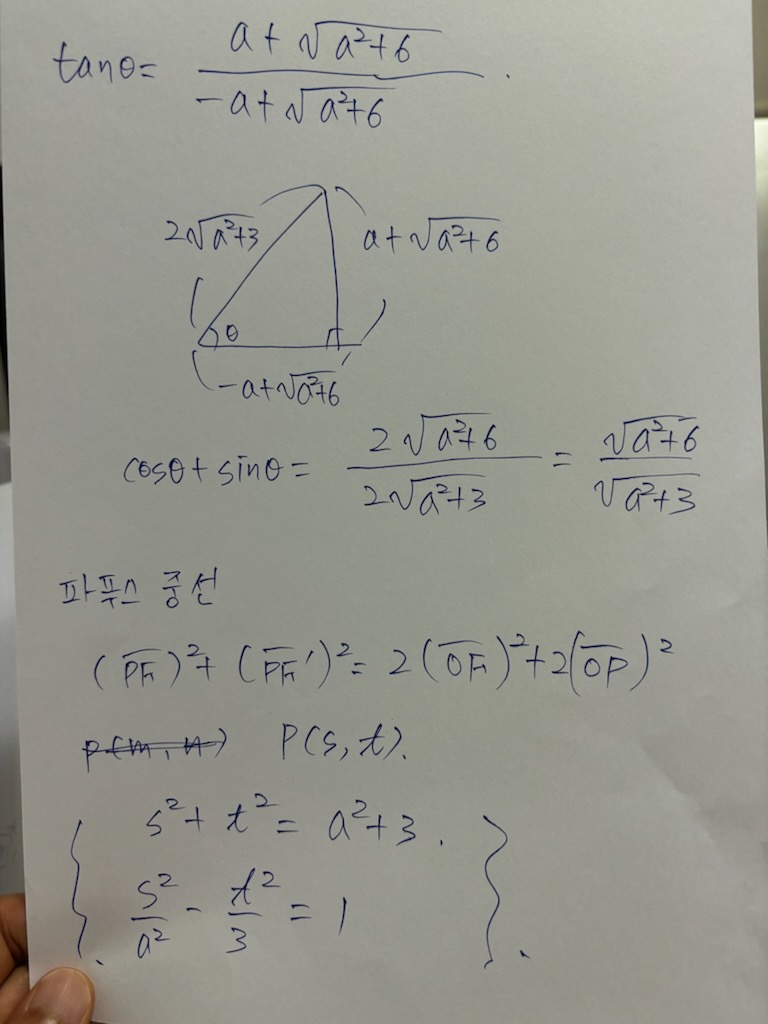 tanθ = (a + √(a²+6)) / (-a + √(a²+6)) .
2√(a²+3)
a + √(a²+6)
θ
-a + √(a²+6)
cosθ + sinθ = (2√(a²+6)) / (2√(a²+3)) = √(a²+6) / √(a²+3)
파푸스 중선
(P̅F̅)² + (P̅F̅')² = 2(O̅F̅)² + 2(O̅P̅)²
P(m, n) P(s, t).
s² + t² = a² + 3 .
s²/a² - t²/3 = 1